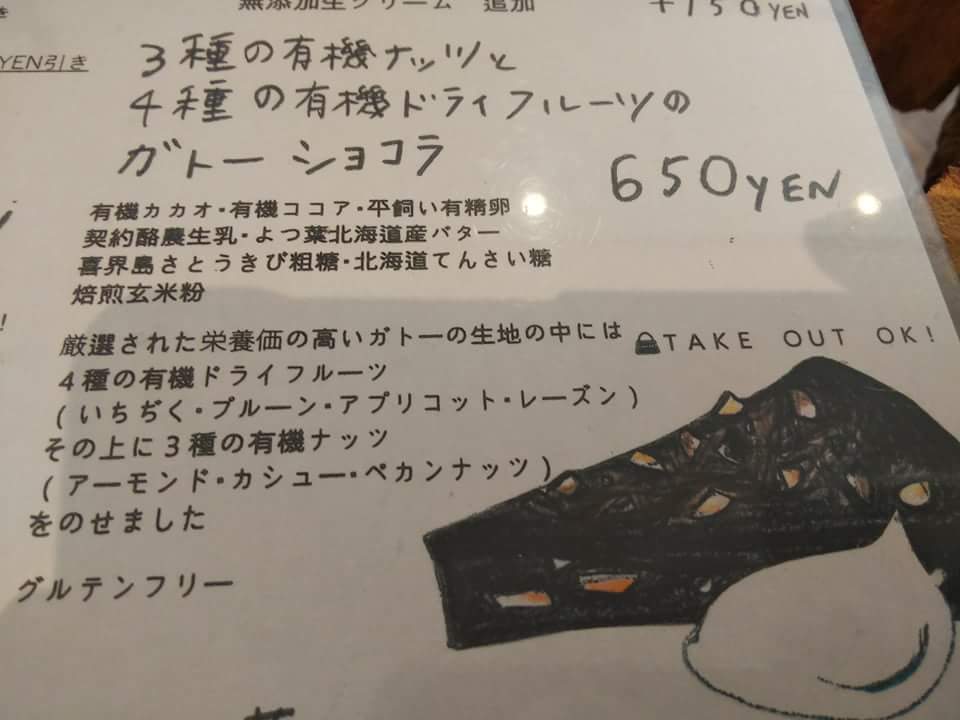 無添加生クリーム 追加 +150YEN
YEN引き
3種の有機ナッツと
4種の有機ドライフルーツの
ガトーショコラ
650YEN
有機カカオ・有機ココア・平飼い有精卵
契約酪農生乳・よつ葉北海道産バター
喜界島さとうきび粗糖・北海道てんさい糖
焙煎玄米粉
厳選された栄養価の高いガトーの生地の中には
TAKE OUT OK!
4種の有機ドライフルーツ
(いちぢく・プルーン・アプリコット・レーズン)
その上に3種の有機ナッツ
(アーモンド・カシュー・ペカンナッツ)
をのせました
グルテンフリー